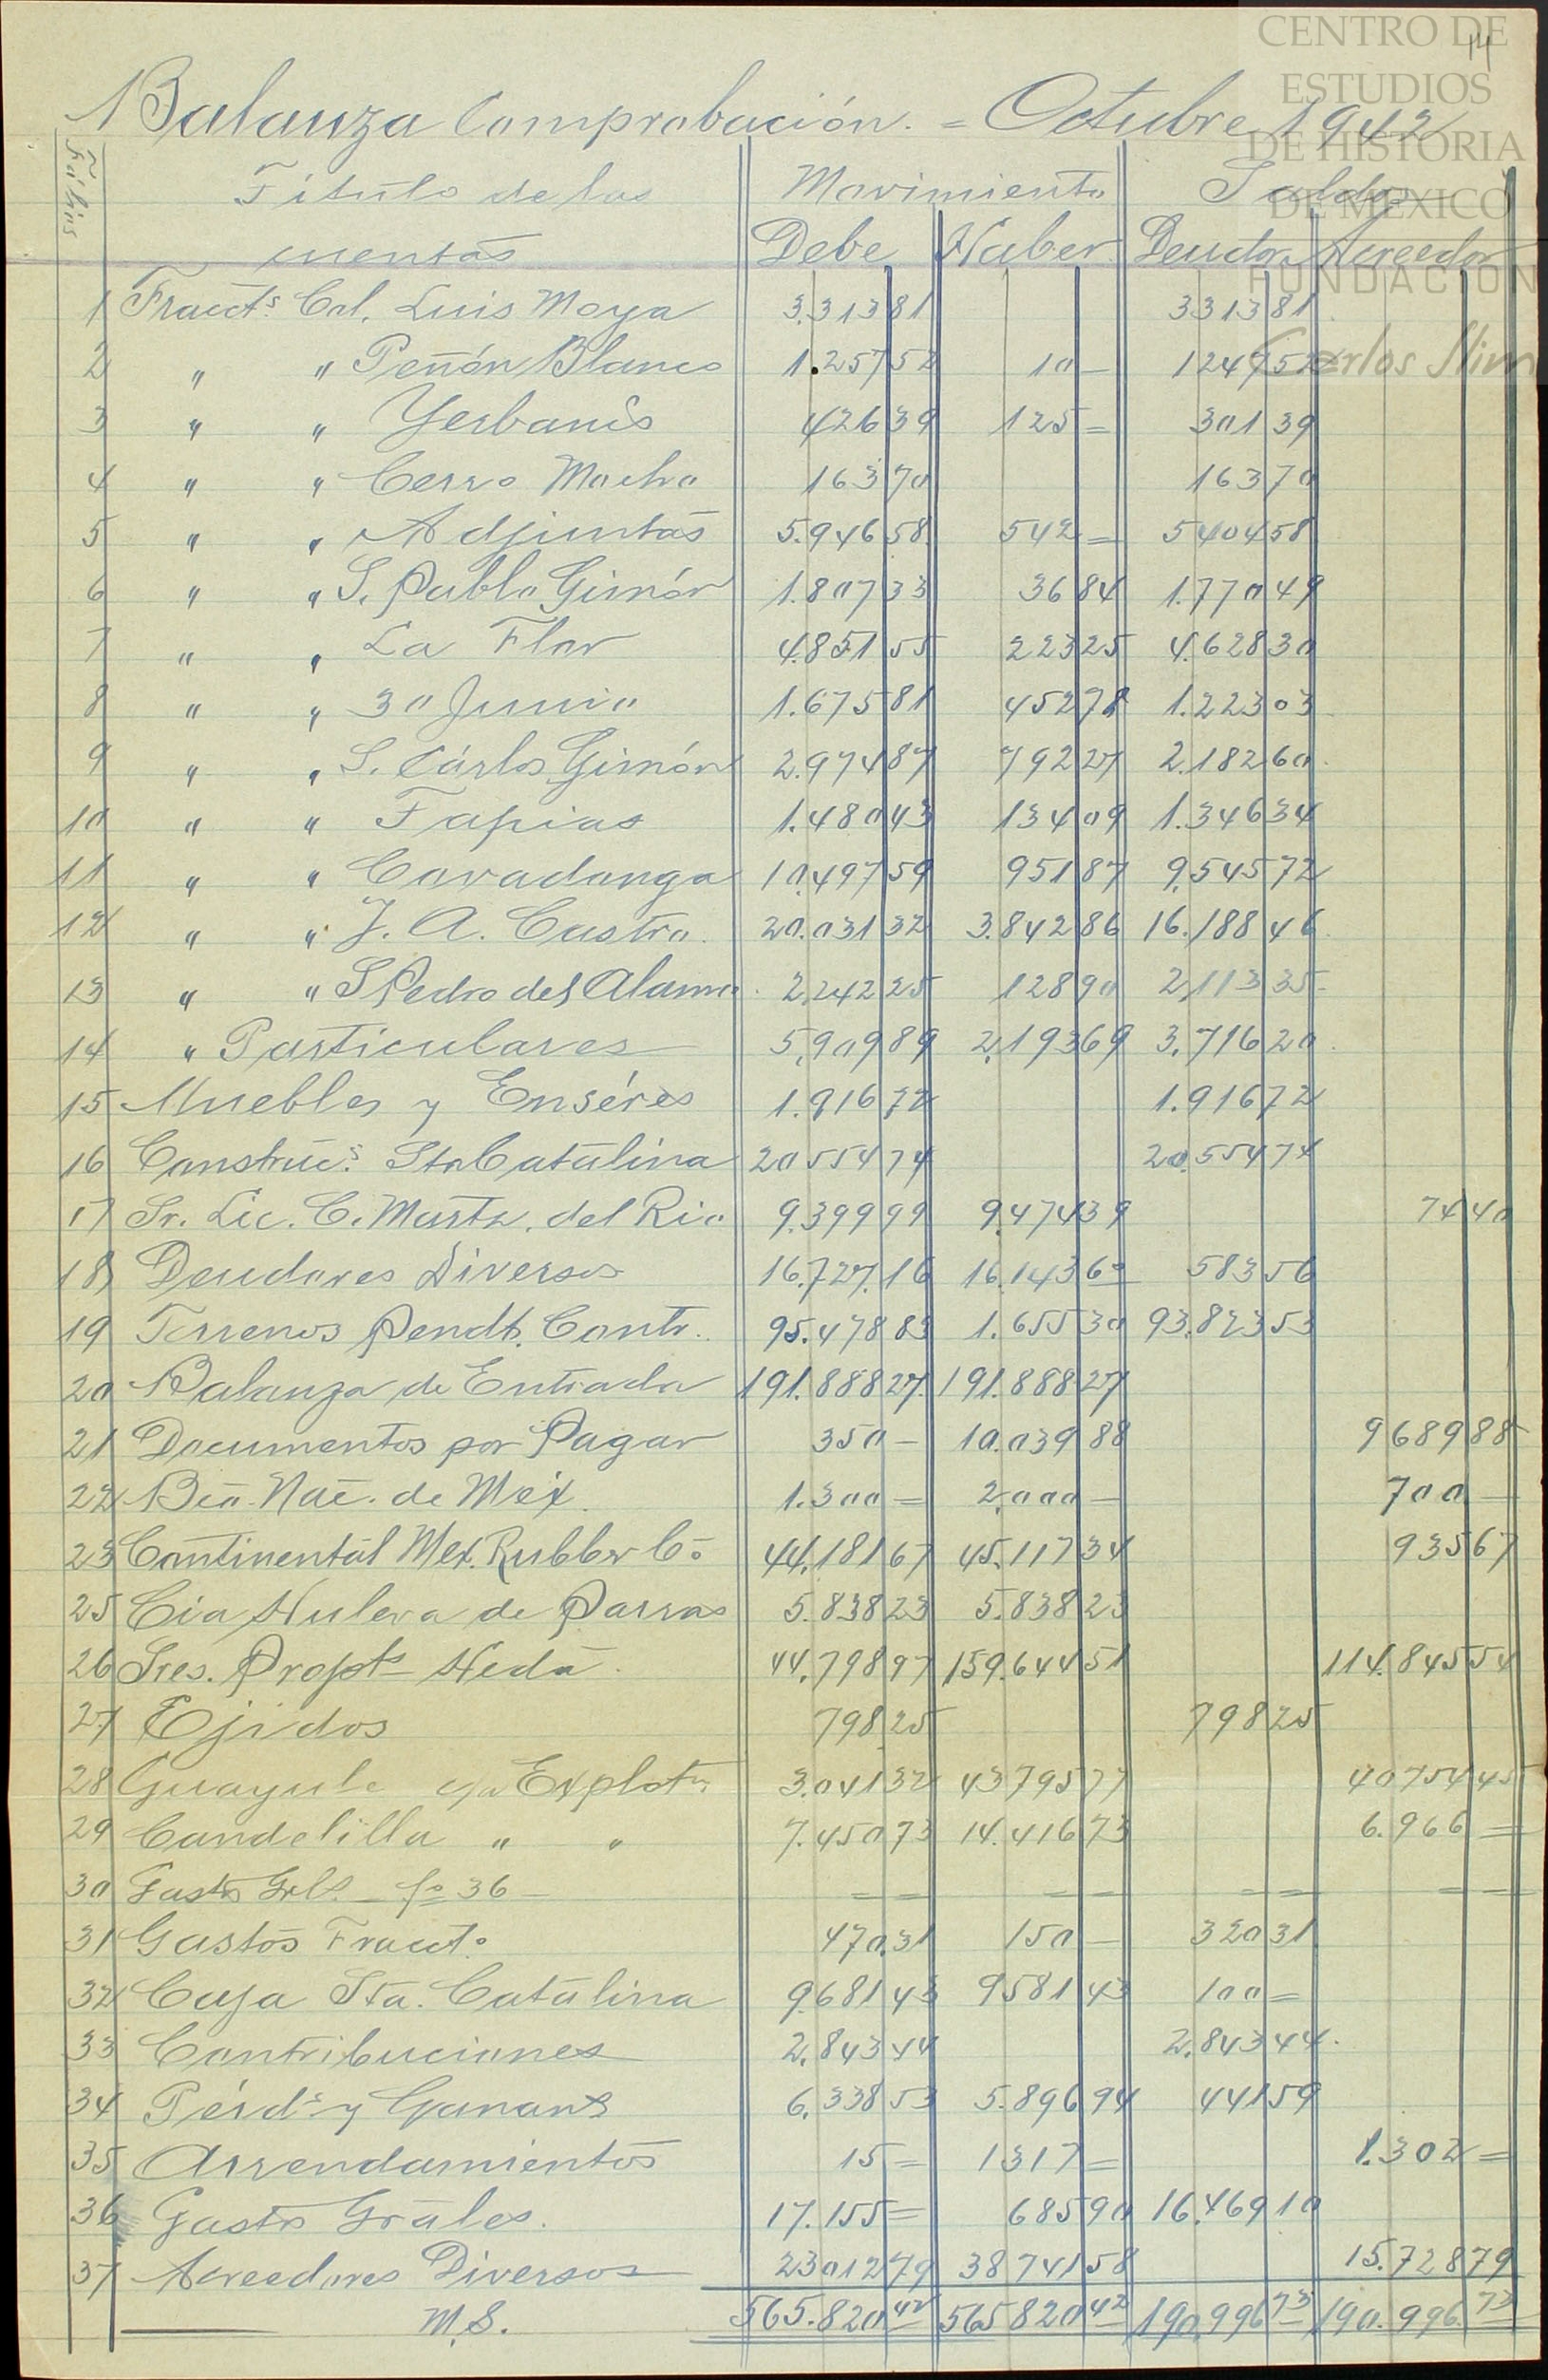 CENTRO DE
ESTUDIOS
DE HISTORIA
DE MEXICO
FUNDACION
Carlos Slim
14
Balanza Comprobación. = Octubre 1942
Fólios Título de las Movimiento Saldos
cuentas Debe Haber Deudor Acreedor
1 Fracct.s Col. Luis Moya 3.313 81 3313 81
2 " " Peñón Blanco 1.257 52 10 — 1247 52
3 " " Yerbanís 426 39 125 = 301 39
4 " " Cerro Mocho 163 70 163 70
5 " " Adjuntas 5.946 58 542 = 5404 58
6 " " S. Pablo Gimón 1.807 33 36 84 1.770 49
7 " " La Flor 4.851 55 223 25 4.628 30
8 " " 30 Junio 1.675 81 452 78 1.223 03
9 " " S. Cárlos Gimón 2.974 87 792 27 2.182 60
10 " " Tapias 1.480 43 134 09 1.346 34
11 " " Covadonga 10.497 59 951 87 9.545 72
12 " " J. A. Castro. 20.031 32 3.842 86 16.188 46
13 " " S Pedro del Alamo 2.242 25 128 90 2.113 35
14 " Particulares 5.909 89 2.193 69 3.716 20
15 Muebles y Enséres 1.916 72 1.916 72
16 Construc.s Sta Catalina 20554 74 20.554 74
17 Sr. Lic. C. Martz. del Rio 9.399 99 9.474 39 74 40
18 Deudores Diversos 16.727.16 16.143 60 583 56
19 Terrenos Pendt. Contr.. 95.478 83 1.655 30 93.823 53
20 Balanza de Entrada 191.888 27 191.888 27
21 Documentos por Pagar 350 — 10.039 88 9689 88
22 Bco. Nac. de Mex. 1.300 = 2.000 — 700 —
23 Continental Mex. Rubber Co 44.181 67 45.117 34 935 67
25 Cia Hulera de Parras 5.838 23 5.838 23
26 Sres. Propts Heda. 44.798 97 159.644 51 114.845 54
27 Ejidos 798 25 798 25
28 Guayule c/o Explotn 3.041 32 43795 77 40754 45
29 Candelilla " " 7.450 73 14.416 73 6.966 =
30 Gastos Grls. — fo 36 — = = = = = = = =
31 Gastos Fracct.o 470.31 150 — 320 31
32 Caja Sta. Catalina 9.681 43 9581 43 100 =
33 Contribuciones 2.843 44 2.843 44
34 Pérds y Ganans 6.338 53 5.896 94 441 59
35 Arrendamientos 15 = 1317 = 1.302 =
36 Gastos Gráles. 17.155 = 685 90 16.469 10
37 Acreedores Diversos 23012 79 38741 58 15.728 79
M.S. 565.820 42 565820 42 190.996 73 190.996. 73